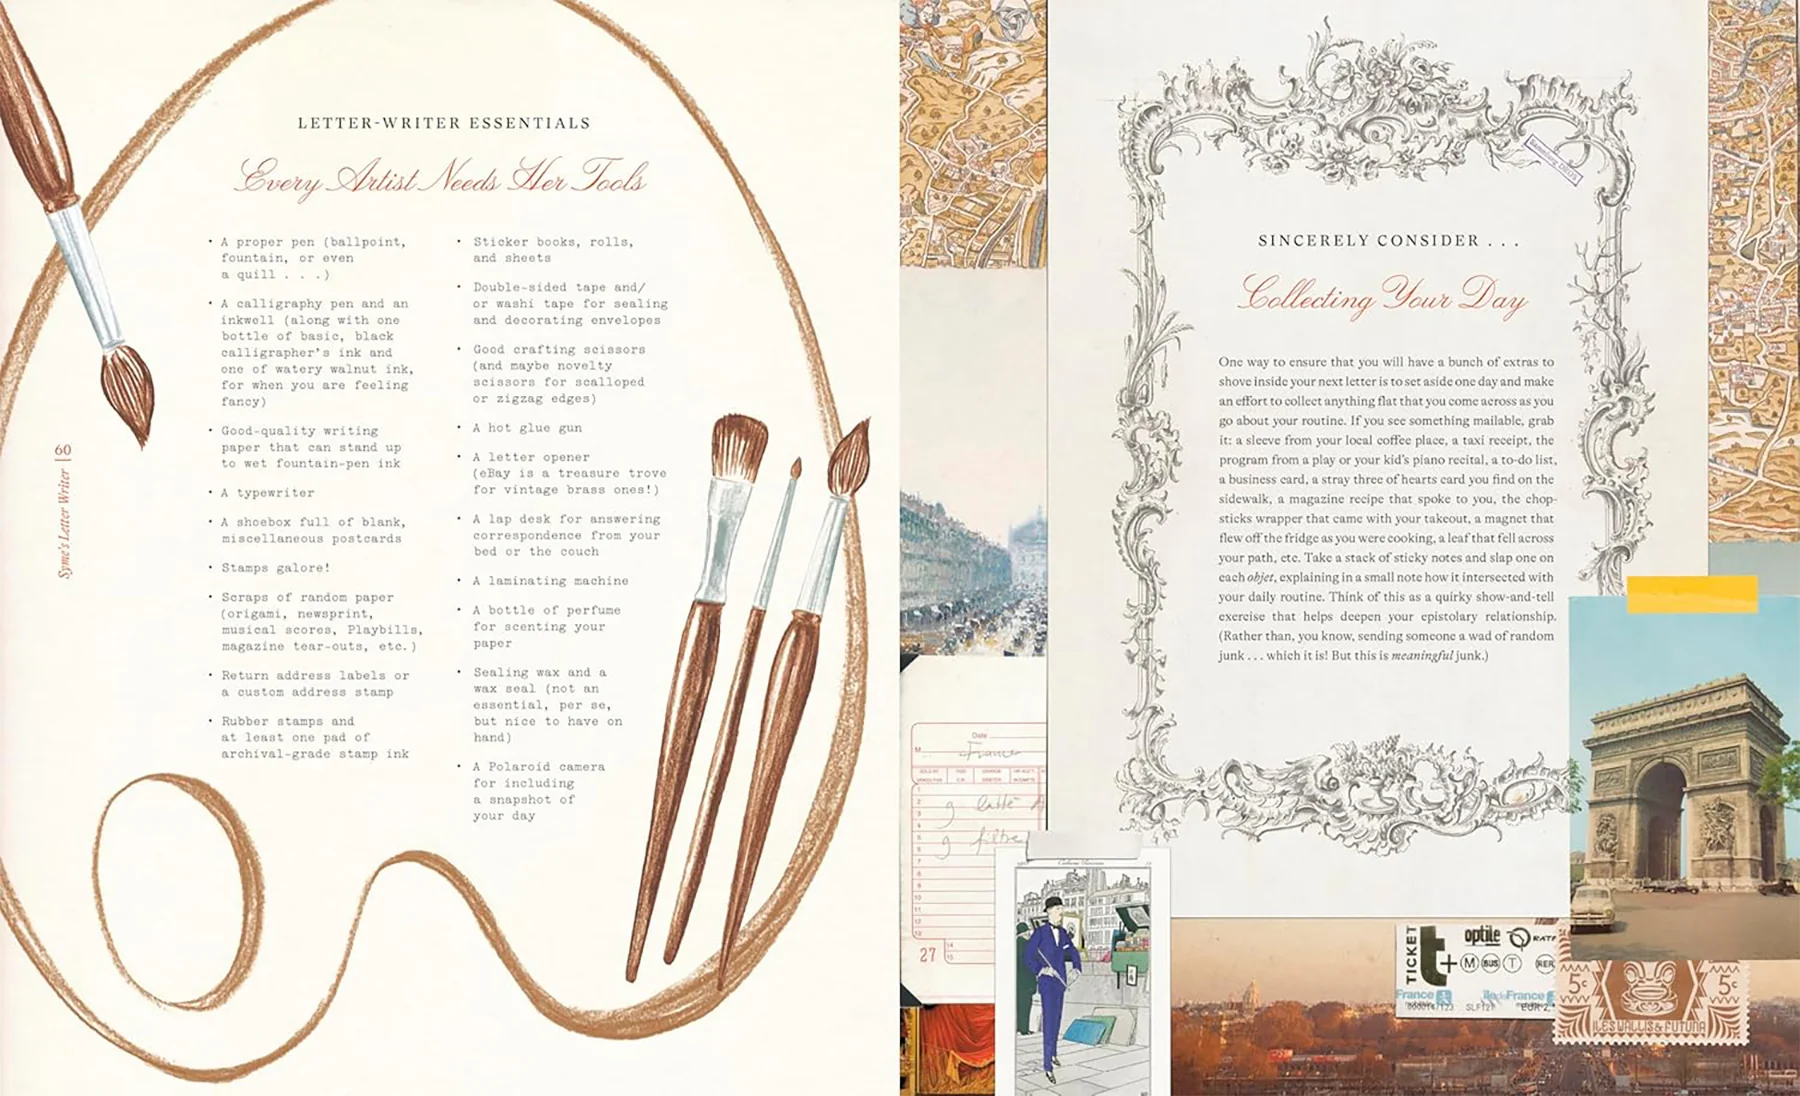 LETTER-WRITER ESSENTIALS
Every Artist Needs Her Tools
• A proper pen (ballpoint,
fountain, or even
a quill . . .)
• A calligraphy pen and an
inkwell (along with one
bottle of basic, black
calligrapher's ink and
one of watery walnut ink,
for when you are feeling
fancy)
• Good-quality writing
paper that can stand up
to wet fountain-pen ink
• A typewriter
• A shoebox full of blank,
miscellaneous postcards
• Stamps galore!
• Scraps of random paper
(origami, newsprint,
musical scores, Playbills,
magazine tear-outs, etc.)
• Return address labels or
a custom address stamp
• Rubber stamps and
at least one pad of
archival-grade stamp ink
• Sticker books, rolls,
and sheets
• Double-sided tape and/
or washi tape for sealing
and decorating envelopes
• Good crafting scissors
(and maybe novelty
scissors for scalloped
or zigzag edges)
• A hot glue gun
• A letter opener
(eBay is a treasure trove
for vintage brass ones!)
• A lap desk for answering
correspondence from your
bed or the couch
• A laminating machine
• A bottle of perfume
for scenting your
paper
• Sealing wax and a
wax seal (not an
essential, per se,
but nice to have on
hand)
• A Polaroid camera
for including
a snapshot of
your day
Syme's Letter Writer | 60
SINCERELY CONSIDER . . .
Collecting Your Day
One way to ensure that you will have a bunch of extras to
shove inside your next letter is to set aside one day and make
an effort to collect anything flat that you come across as you
go about your routine. If you see something mailable, grab
it: a sleeve from your local coffee place, a taxi receipt, the
program from a play or your kid's piano recital, a to-do list,
a business card, a stray three of hearts card you find on the
sidewalk, a magazine recipe that spoke to you, the chop-
sticks wrapper that came with your takeout, a magnet that
flew off the fridge as you were cooking, a leaf that fell across
your path, etc. Take a stack of sticky notes and slap one on
each objet, explaining in a small note how it intersected with
your daily routine. Think of this as a quirky show-and-tell
exercise that helps deepen your epistolary relationship.
(Rather than, you know, sending someone a wad of random
junk . . . which it is! But this is meaningful junk.)
Date
M
France
1
2
3
4
5
6
7
8
9
10
11
12
13
14
15
27
TICKET
t+
optile
RATP
M BUS T RER
France
île de France
5c
5c
ILES WALLIS & FUTUNA